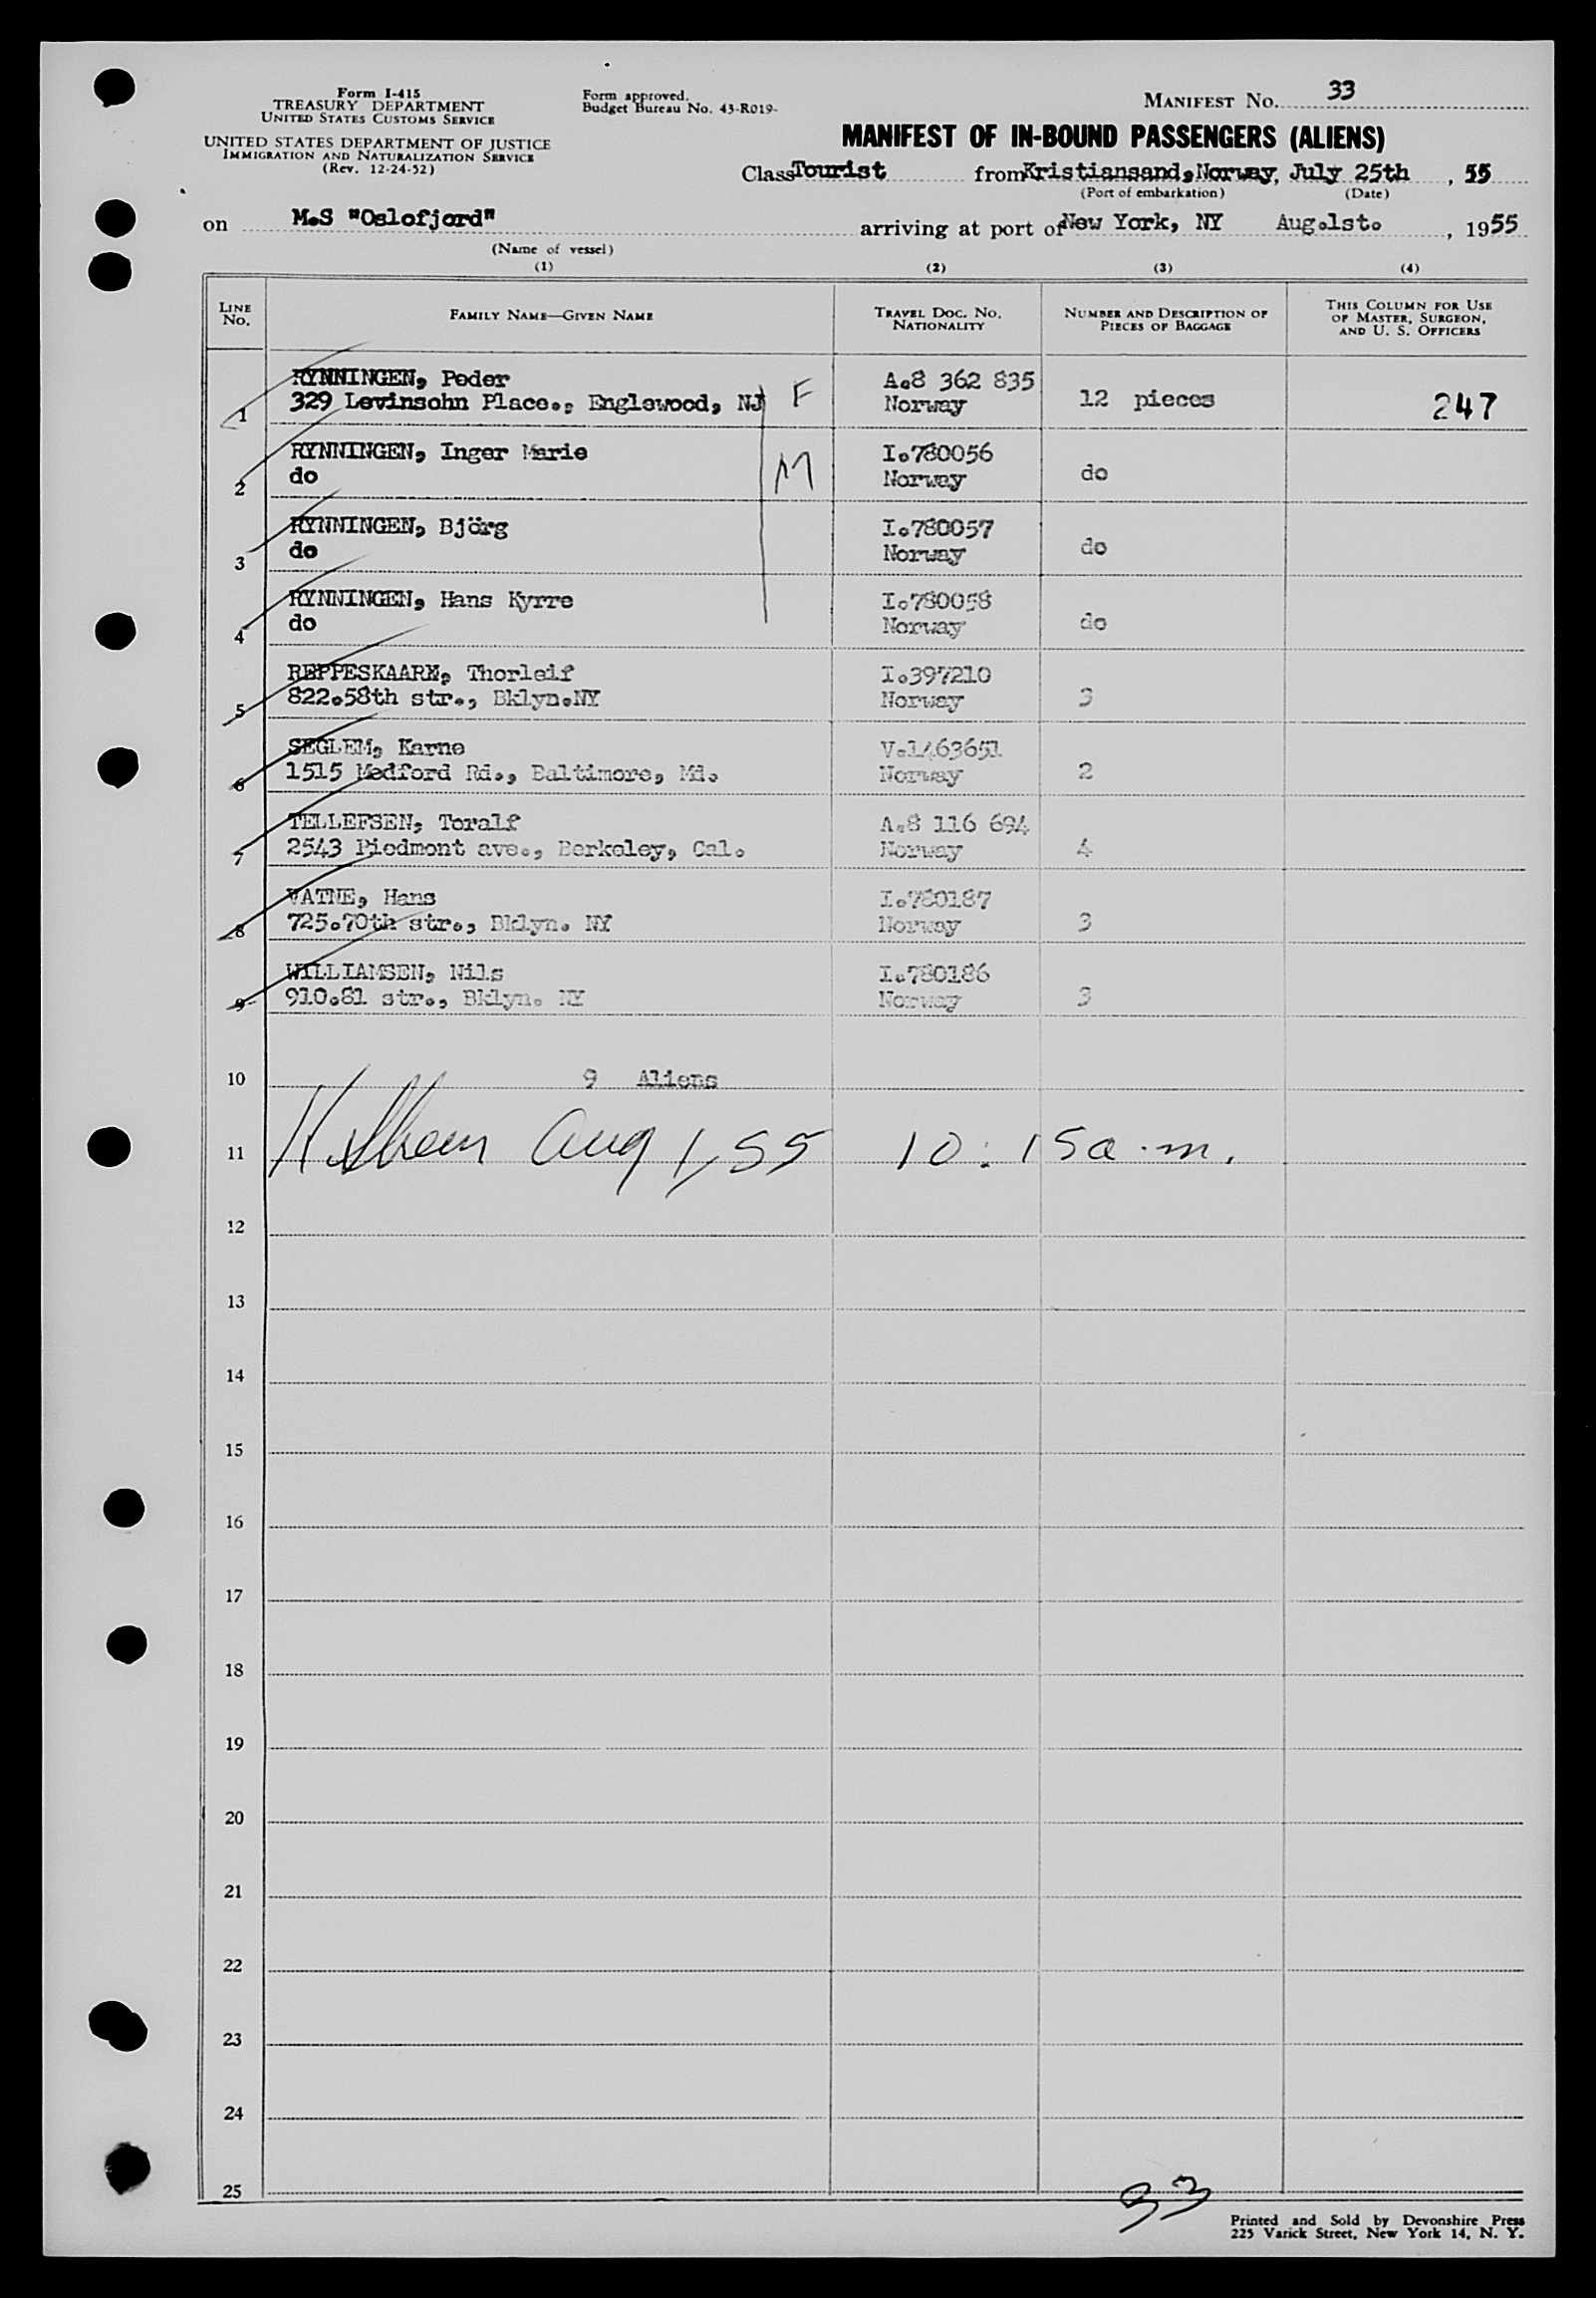 Form I-415
TREASURY DEPARTMENT
UNITED STATES CUSTOMS SERVICE
UNITED STATES DEPARTMENT OF JUSTICE
IMMIGRATION AND NATURALIZATION SERVICE
(Rev. 12-24-52)
Form approved.
Budget Bureau No. 43-R019-
MANIFEST NO. 33
MANIFEST OF IN-BOUND PASSENGERS (ALIENS)
Class Tourist from Kristiansand, Norway, July 25th, 55
(Port of embarkation) (Date)
on M.S "Oslofjord" arriving at port of New York, NY Aug.1st. , 1955
(Name of vessel)
(1) (2) (3) (4)
LINE NO. FAMILY NAME—GIVEN NAME TRAVEL DOC. NO. NATIONALITY NUMBER AND DESCRIPTION OF PIECES OF BAGGAGE THIS COLUMN FOR USE OF MASTER, SURGEON, AND U. S. OFFICERS
RYNNINGEN, Peder A.8 362 835
1 329 Levinsohn Place., Englewood, NJ F Norway 12 pieces 247
RYNNINGEN, Inger Marie I.780056
2 do M Norway do
RYNNINGEN, Björg I.780057
3 do Norway do
RYNNINGEN, Hans Kyrre I.780058
4 do Norway do
REPPESKAARN, Thorleif I.397210
5 822.58th str., Bklyn.NY Norway 3
SEGLEM, Karne V.1463651
6 1515 Medford Rd., Baltimore, Md. Norway 2
TELLEFSEN, Toralf A.8 116 694
7 2543 Piedmont ave., Berkeley, Cal. Norway 4
VATNE, Hans I.780187
8 725.70th str., Bklyn. NY Norway 3
WILLIAMSEN, Nils I.780186
9 910.81 str., Bklyn. NY Norway 3
10 9 Aliens
11 Aug 1, 55 10:15 a.m.
12
13
14
15
16
17
18
19
20
21
22
23
24
25
33
Printed and Sold by Devonshire Press
225 Varick Street, New York 14, N. Y.